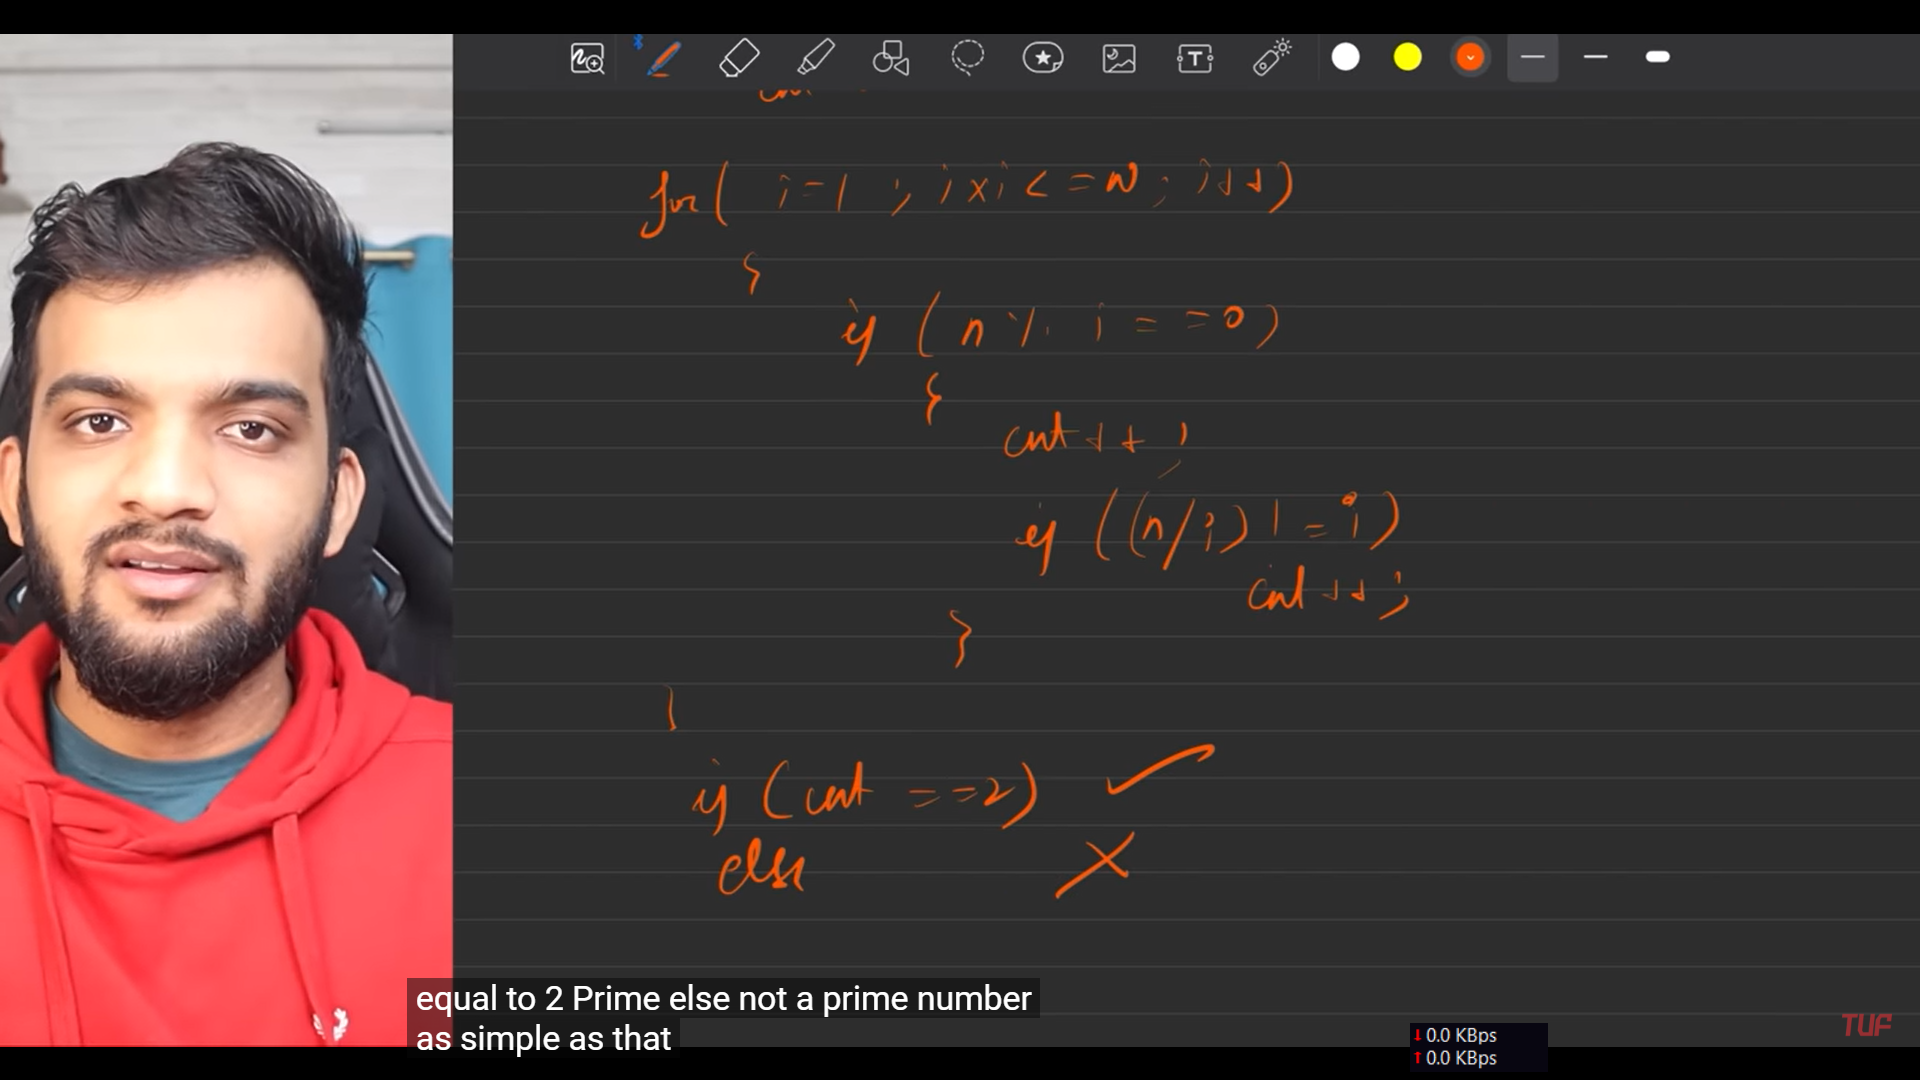 for( i=1 ; i×i<=N ; i++)
{
if (n % i = =0)
{
cnt++ ;
if ((n/i) != i)
cnt++ ;
}
}
if (cnt ==2) ✓
else ✗
equal to 2 Prime else not a prime number
as simple as that
TUF
↓ 0.0 KBps
↑ 0.0 KBps